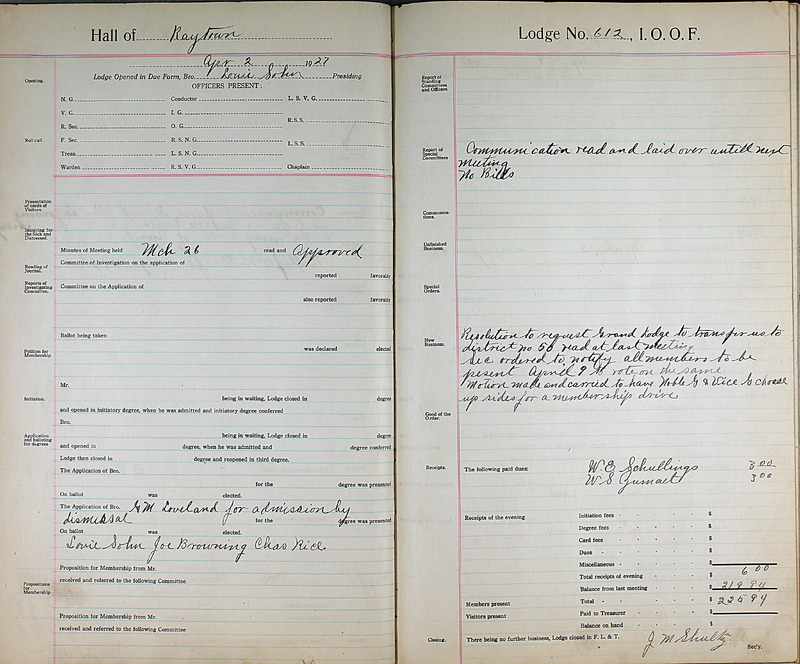 Hall of Raytown
Apr 2 1927
Lodge Opened in Due Form, Bro. Louie Sohn Presiding
Opening.
OFFICERS PRESENT:
N. G. Conductor L. S. V. G.
V. G. I. G.
R. S. S.
R. Sec. O. G.
Roll call.
F. Sec. R. S. N. G.
L. S. S.
Treas. L. S. N. G.
Warden R. S. V. G. Chaplain
Presentation of cards of Visitors.
Inquiring for the Sick and Distressed.
Minutes of Meeting held Mch 26 read and Approved
Reading of Journal.
Committee of Investigation on the application of
reported favorably
Reports of Investigating Committee.
Committee on the Application of
also reported favorably
Ballot being taken
was declared elected
Petition for Membership
Mr.
Initiation.
being in waiting, Lodge closed in degree
and opened in initiatory degree, when he was admitted and initiatory degree conferred
Bro.
Application and balloting for degrees
being in waiting, Lodge closed in degree
and opened in degree, when he was admitted and degree conferred
Lodge then closed in degree and reopened in third degree.
The Application of Bro.
for the degree was presented
On ballot was elected.
The Application of Bro. G M Loveland for admission by
dismissal for the degree was presented
On ballot was elected.
Louie Sohn Joe Browning Chas Rice
Proposition for Membership from Mr.
received and referred to the following Committee
Propositions for Membership
Proposition for Membership from Mr.
received and referred to the following Committee
Lodge No. 612, I. O. O. F.
Report of Standing Committees and Officers
Report of Special Committees
Communication read and laid over untill next
meeting
No Bills
Communications.
Unfinished Business.
Special Orders.
New Business.
Resolution to request Grand Lodge to transfer us to
district no 50 read at last meeting
Sec ordered to notify all members to be
present April 9 to vote on the same
Motion made and carried to have Noble G & Vice G choose
up sides for a membership drive
Good of the Order.
Receipts.
The following paid dues: W E Schullings 3 00
W S Gumaet 3 00
Receipts of the evening Initiation fees $
Degree fees $
Card fees $
Dues $
Miscellaneous $
Total receipts of evening $ 6 00
Balance from last meeting $ 219 94
Members present Total $ 225 94
Visitors present Paid to Treasurer $
Balance on hand $
Closing. There being no further business, Lodge closed in F. L. & T. J M Shultz
Sec'y.